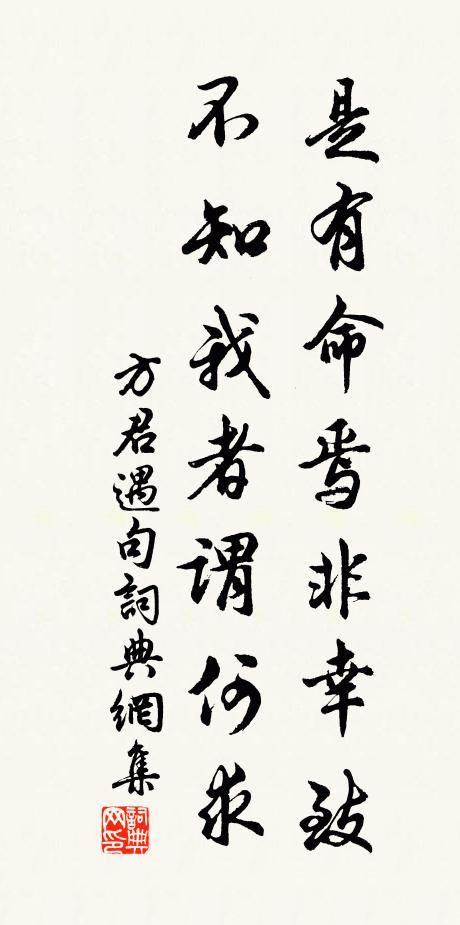 是有命焉非幸致
不知我者謂何求
方君遇句詞典網集
詞典网印